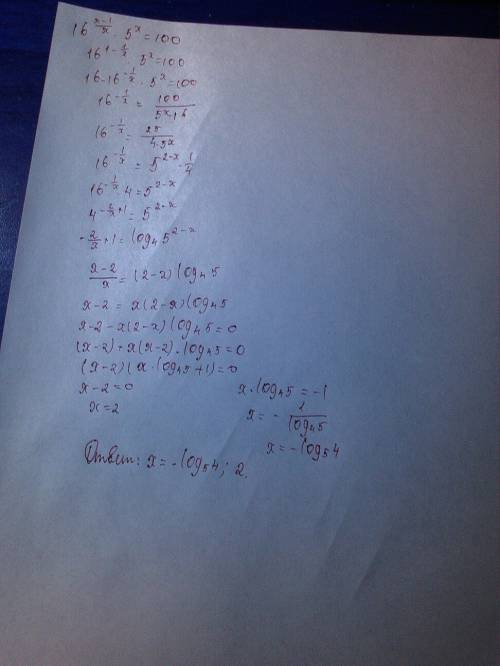 16^((x-1)/x) · 5^x = 100
16^(1-1/x) · 5^x = 100
16·16^(-1/x) · 5^x = 100
16^(-1/x) = 100/(5^x·16)
16^(-1/x) = 25/(4·5^x)
16^(-1/x) = 5^(2-x) · 1/4
16^(-1/x) · 4 = 5^(2-x)
4^(-2/x+1) = 5^(2-x)
-2/x+1 = log₄5^(2-x)
(x-2)/x = (2-x) log₄5
x-2 = x(2-x) log₄5
x-2-x(2-x) log₄5 = 0
(x-2)+x(x-2)·log₄5 = 0
(x-2)(x·log₄5+1) = 0
x-2=0 x·log₄5 = -1
x=2 x = -1/log₄5
x = -log₅4
Ответ: x = -log₅4; 2.